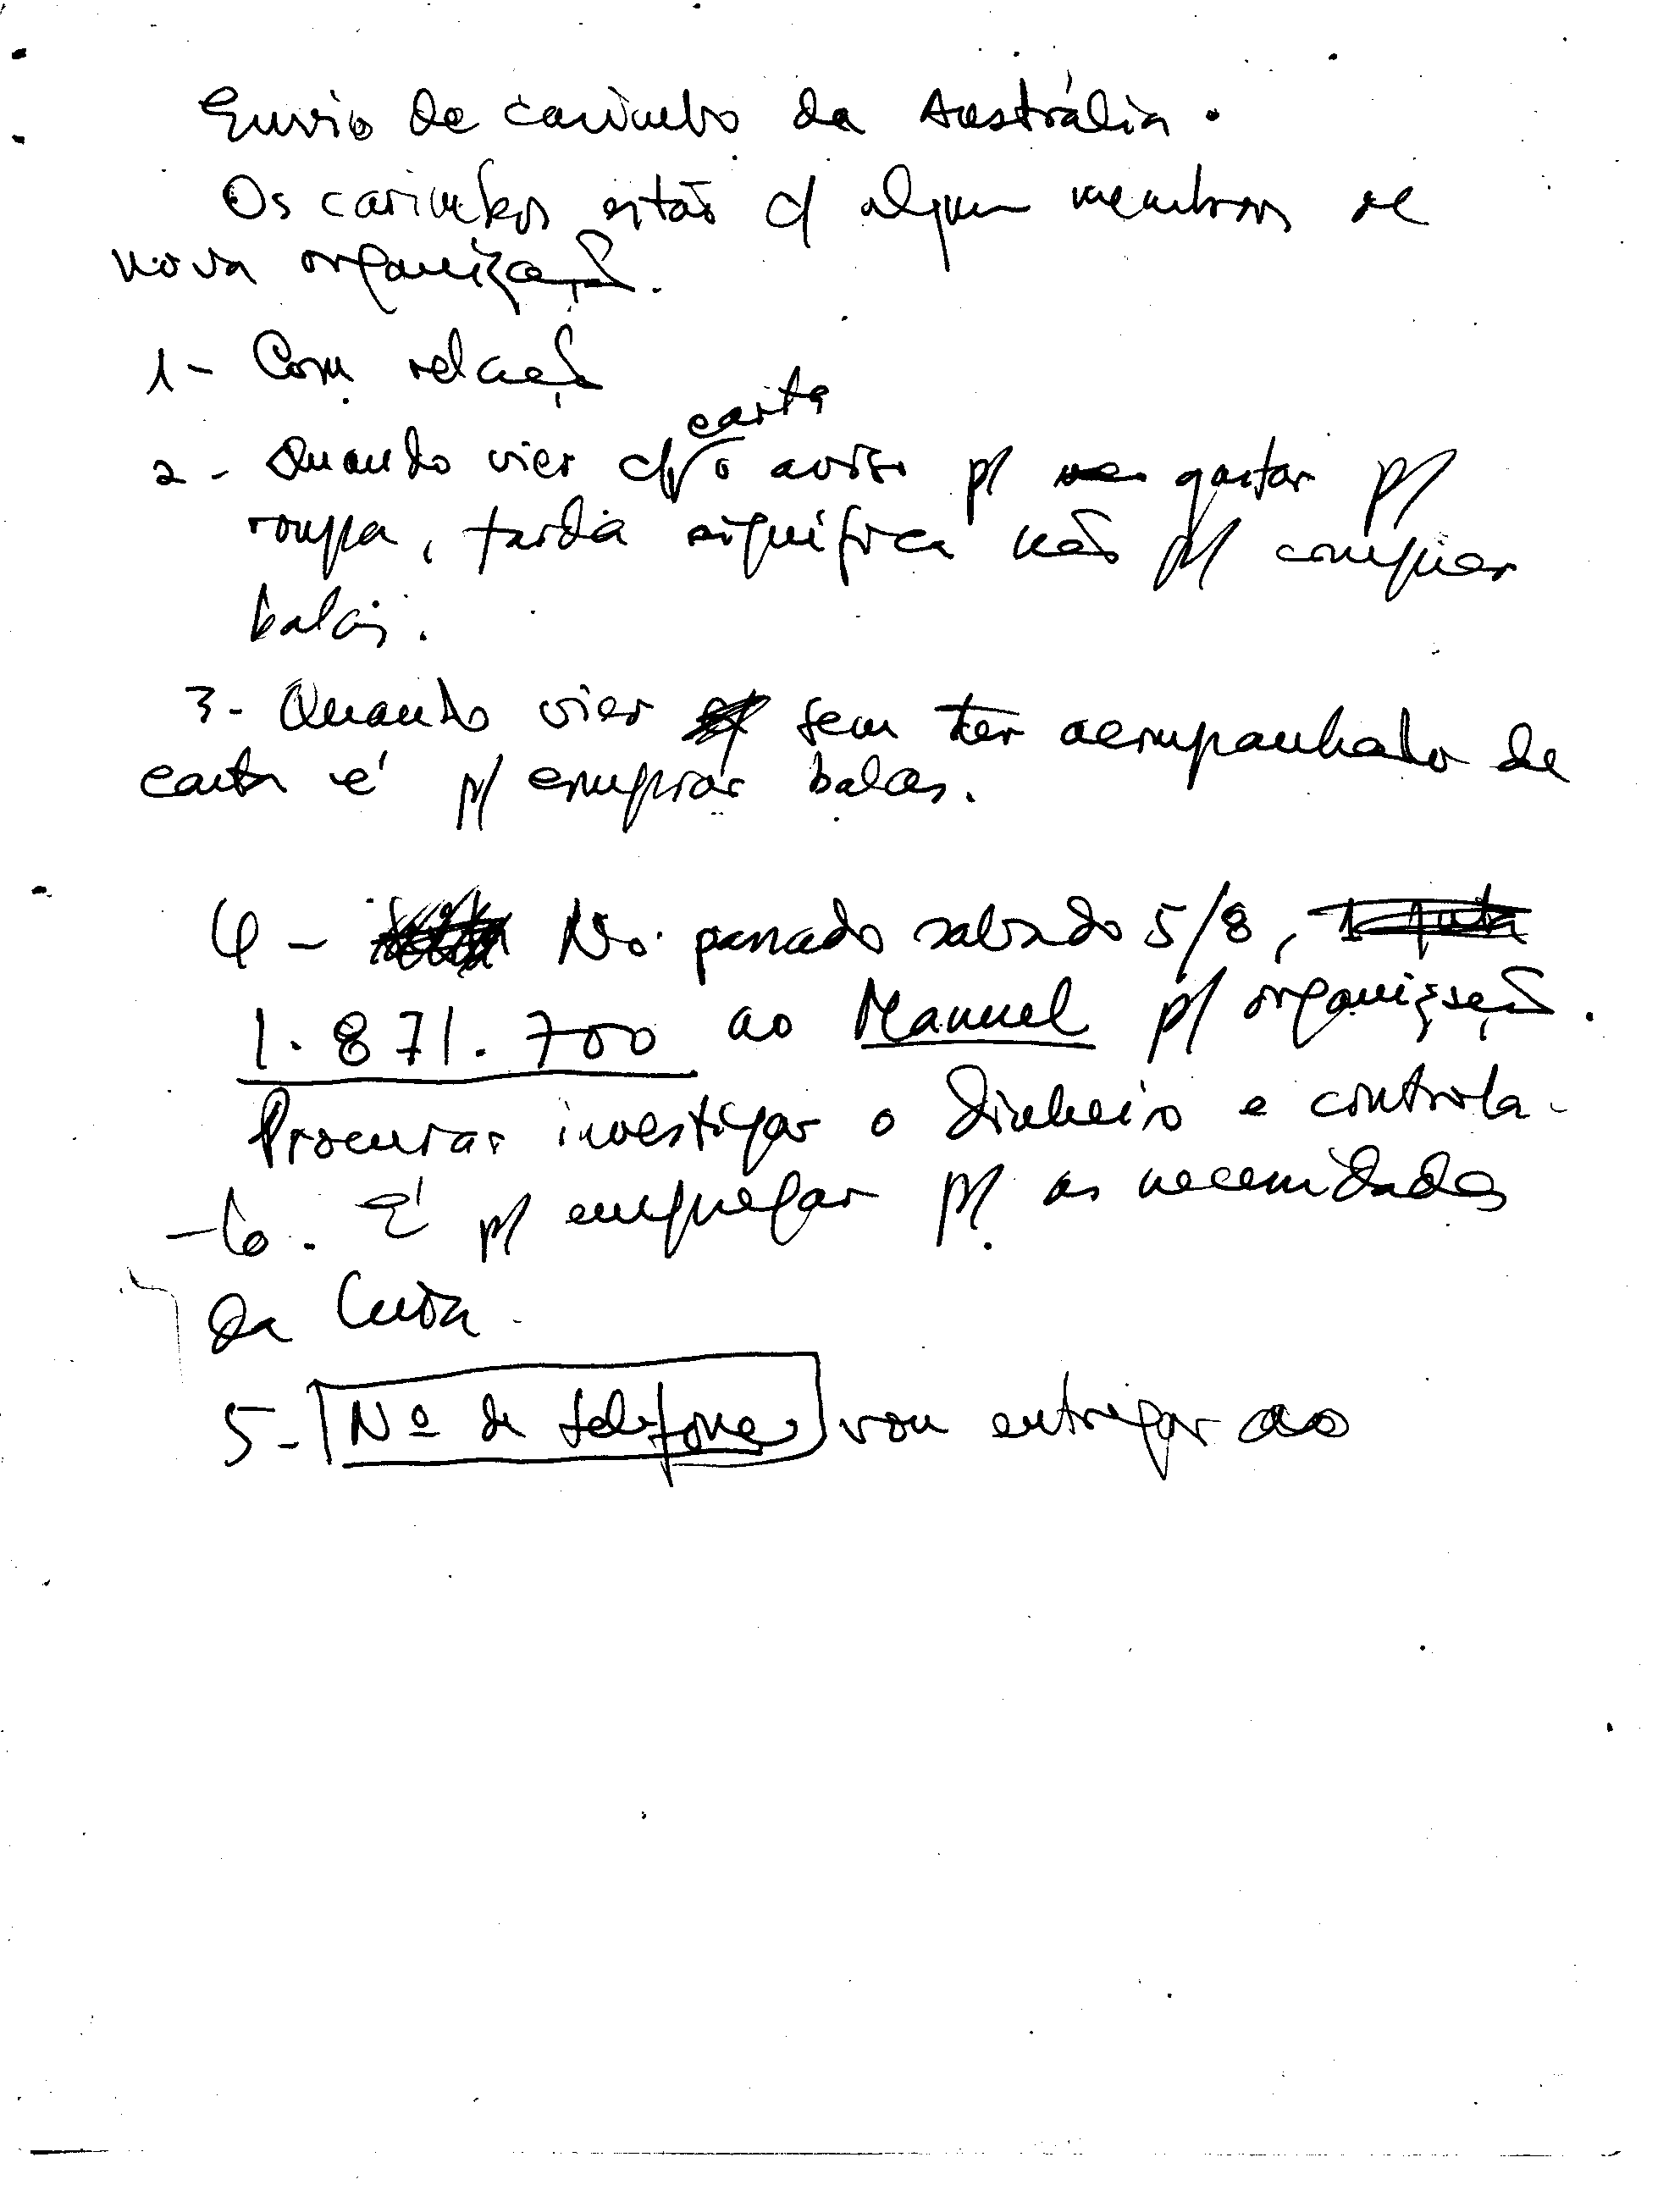 Envio de carimbo da Austrália.
Os carimbos estão c/ algum membros de
nova organização.
1- Com relação
carta
2- Quando vier c/ o aviso p/ gastar p/
roupa, farda significa não p/ comprar
balas.
3- Quando vier sem ter acompanhado de
carta é p/ comprar balas.
4- No passado sabado 5/8,
1.871.700 ao Manuel p/ organização.
Procurar investigar o dinheiro e controla-
-lo. É p/ empregar p/ as necessidades
da
5- Nº de telefone vou entregar ao